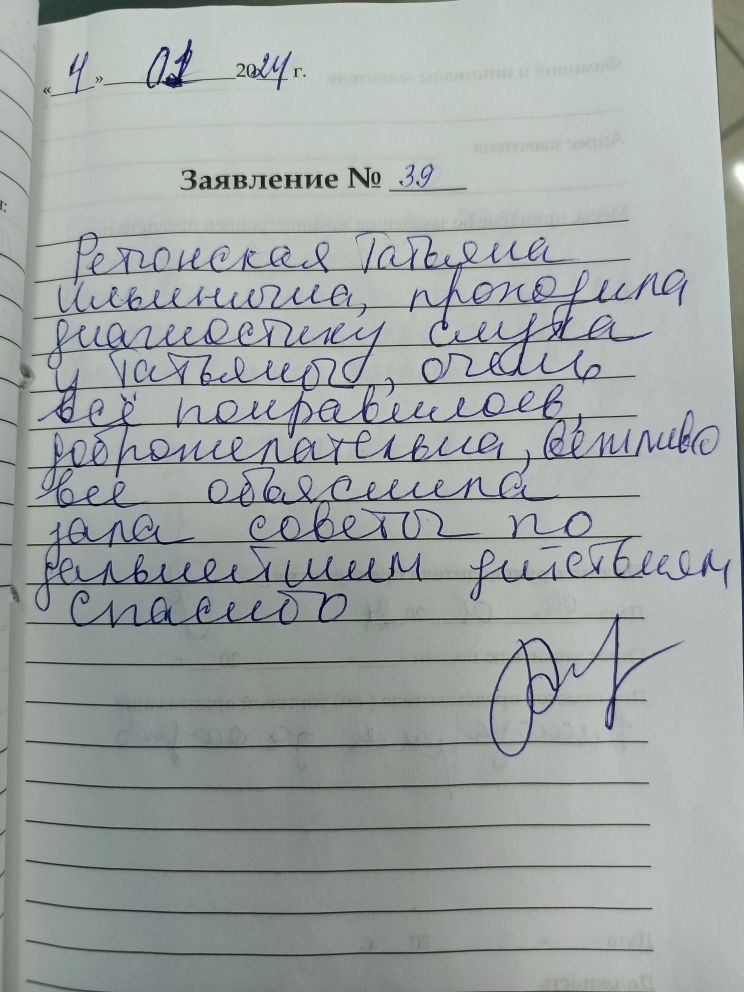 « 4 » 01 2024 г.
Заявление № 39
Ретюнская Татьяна
Ильинична, проходила
диагностику слуха
у Татьяны, очень
всё понравилось,
доброжелательна, вежливо
все объяснила
дала советы по
дальнейшим действиям
Спасибо